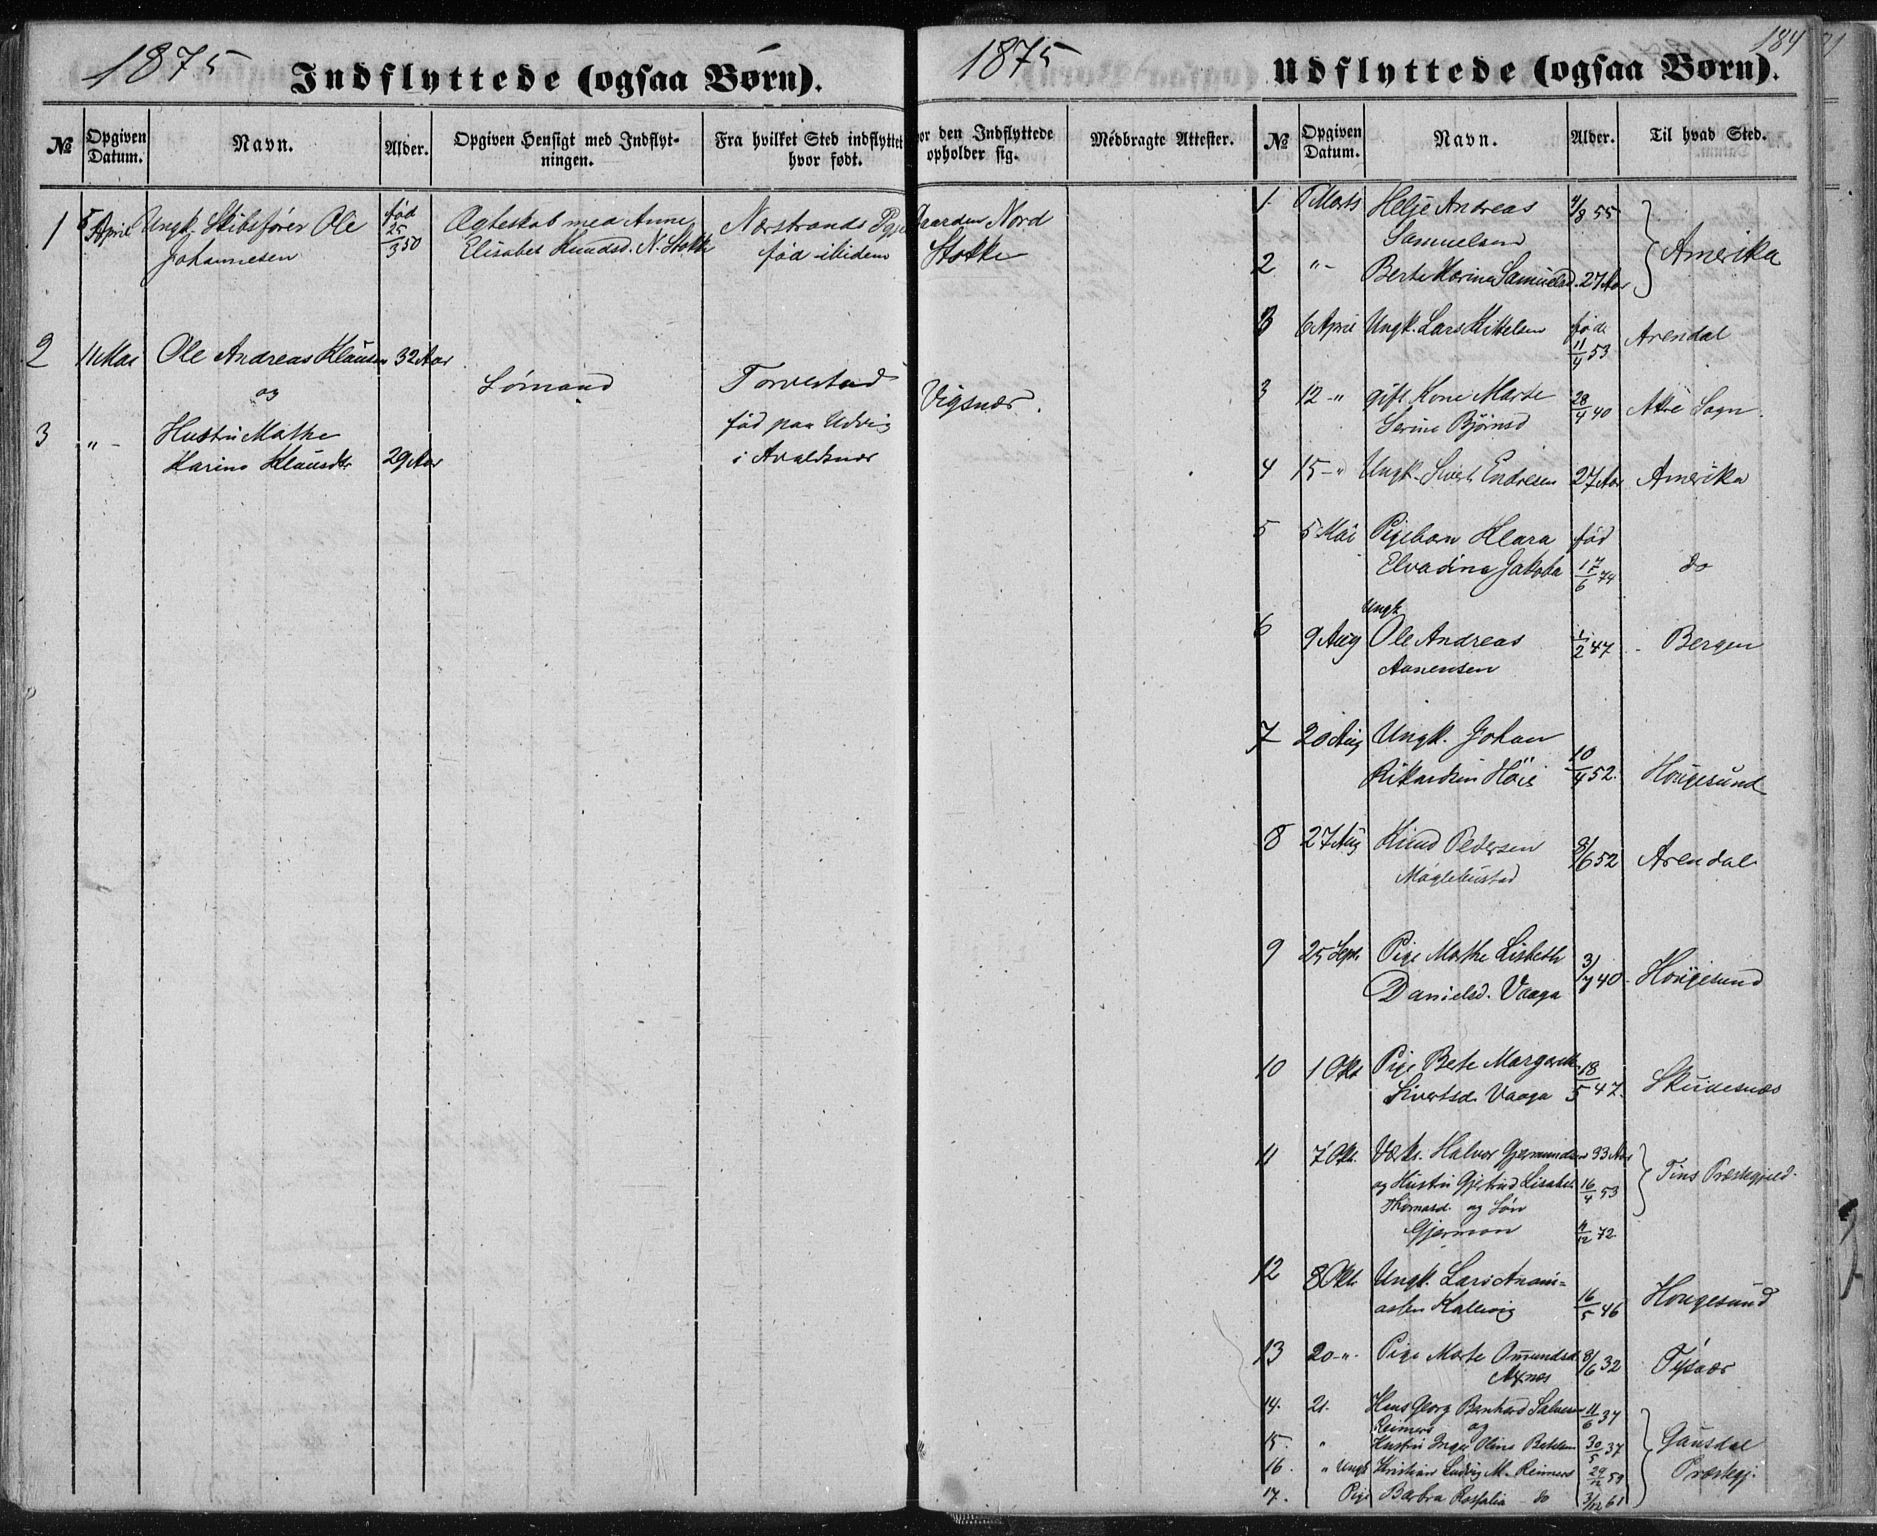 1875
Indflyttede (ogsaa Børn).
№
Opgiven Datum.
Navn.
Alder.
Opgiven Hensigt med Indflyt-
ningen.
Fra hvilket Sted indflyttet
hvor født.
or den Indflyttede
opholder sig.
Medbragte Attester.
1 5 April Ungk. Skibsfører Ole født Ægteskab med Anne Nærstrands Pgj Gaarden Nord
Johannesen 25/3 50 Elisabet Knudsd. N. Stokke fød ibidem Stokke
2 11 Mai Ole Andreas Klausen 32 Aar
og Sømand Torvestad Vigsnæs.
3 "- Hustru Mathe fød paa Udvig
Karine Klausdtr 29 Aar i Avaldsnæs
1875
184
Udflyttede (ogsaa Børn).
№
Opgiven Datum.
Navn.
Alder.
Til hvad Sted.
1 Marts Helje Andreas 4/8 55
Samuelsen
Amerika
2 "- Berte Karine Samuelsd. 27 Aar
3 6 April Ungk. Lars Kittelsen fød. Arendal
11/4 53
3 12 -" gift Kone Marte 28/9 40 Sogn.
Serine Bjørnsd
4 15 -" Ungk. Sivert Endresen 27 Aar Amerika
5 5 Mai Pigebarn Klara fød
Elvadine Jakoba 17/6 74 do
Ungk
6 9 Aug Ole Andreas 1/2 47 - Bergen
Aanensen
7 20 Aug Ungk. Johan
Rikardsen Høie 10/4 52. Hougesund
8 27 Aug Knud Pedersen 8/6 52 Arendal
Møglebustad
9 25 Sept. Pige Marthe Lisbeth 3/7 40. Hougesund
Danielsd. Vaaga
10 1 Okt Pige Bete Margarethe 18/5 47. Skudesnæs
Sivertsd. Vaaga
11 7 Okt. Halvor Gjermundsen 33 Aar
og Hustru Gjertrud Lisabet 16/4 53 Tins Præstegjeld.
Thomasd. og Søn
Gjermon 4/12 72
12 8 Okt. Ungk. Lars Anani=
asen Kallevig 16/5 46 Hougesund
13 20 -"- Pige Marte Omundsd. 8/6 32 Tysvær
Axnes
14. 21. Hans Georg Bernhard Salvesen 11/6 37
Reimers og
15. " Hustru Inger Oline Betsdm 30/5 37 Gausdal
16. " Ungk Kristian Ludvig M. Reimers 29/12 59 Præstegj.
17. Pige Barbra Rosfalia - do 3/12 61